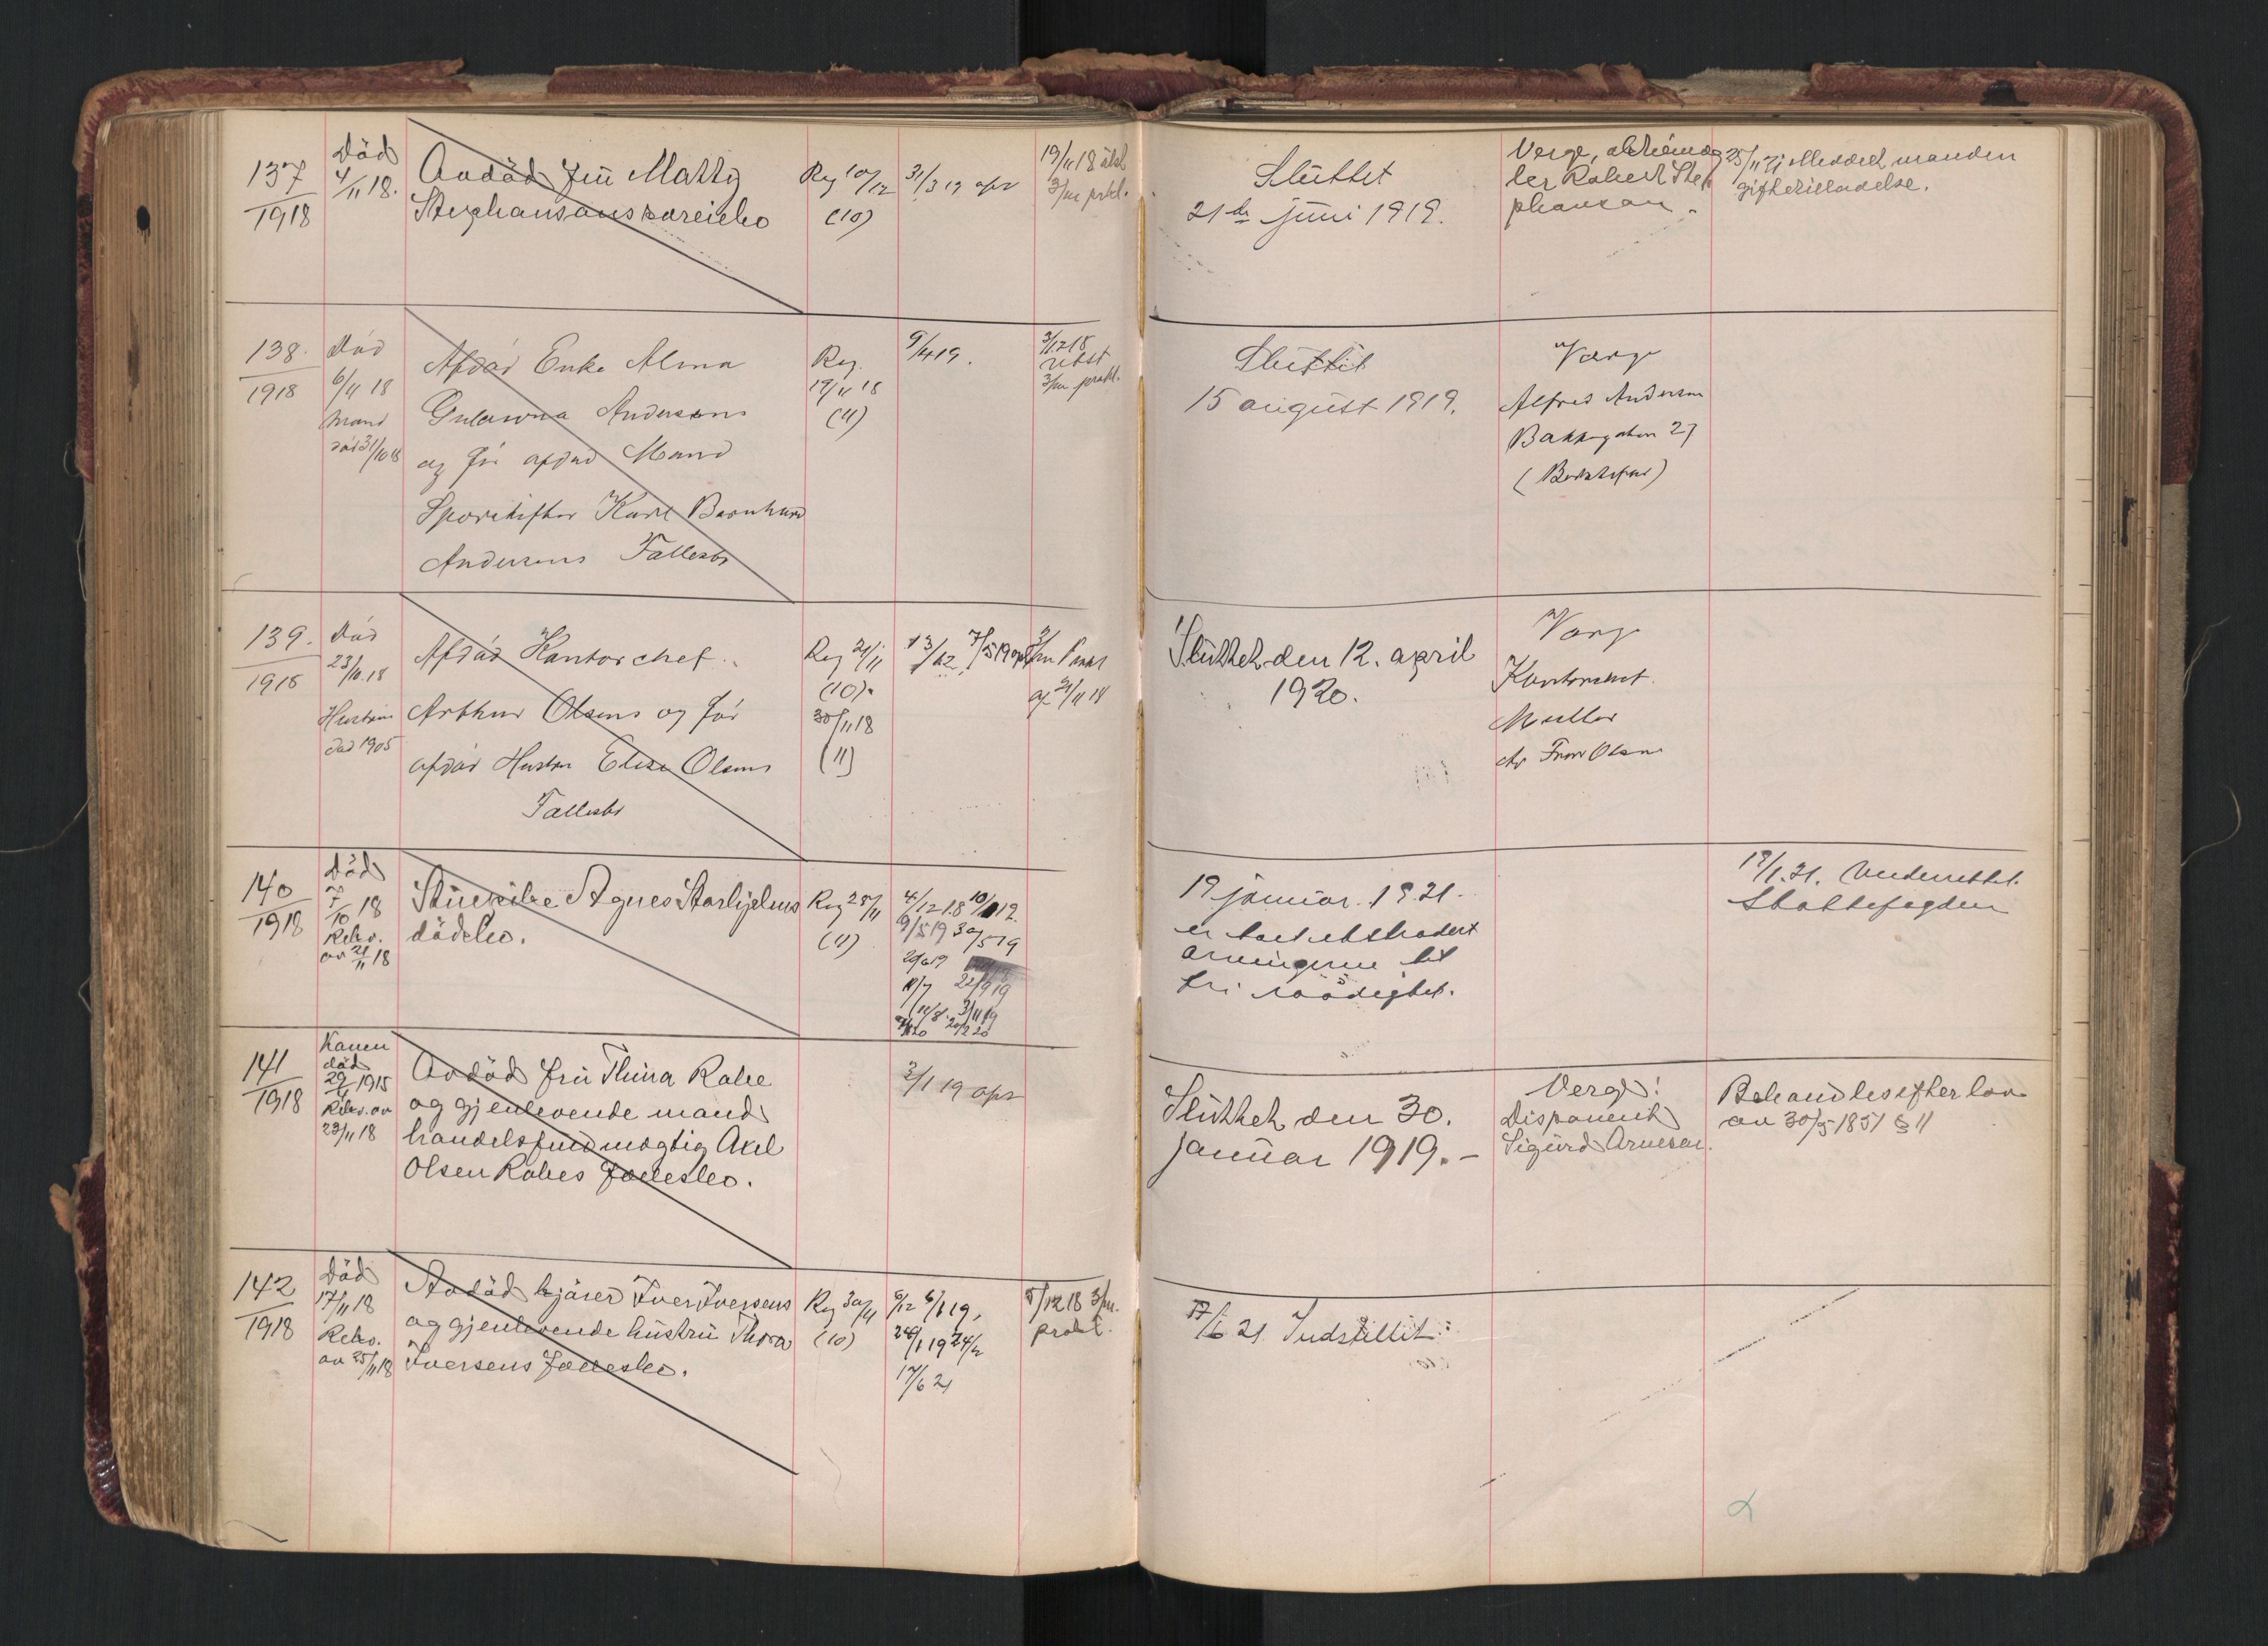 137
1918
Död
4/11 18.
Avdöd frü Matty
Stephansons særeiebo
Reg 10/12
(10)
31/3 19 apr
19/11 18 utst
3/m prokl.
Slüttet
21de jüni 1919.
Verge, aktiemæg
ler Robert Ste
phanson.
25/11 Meddelt manden
giftetilladelse.
138.
1918
Död
6/11 18
Mand
död 31/10 18
Afdöd Enke Alma
Andersens
og før afdød Mand
Karl Bernhard
Andersens Fællesbo
Reg.
19/11 18
(11)
9/4 19.
3/12 18
utst
3/m prokl.
Sluttet
15 august 1919.
Værge
Alfred Andersen
Bakkegaten 27
139.
1918
Död
23/10.18
Hustru
död 1905
Afdöd Kontorchef
Arthur Olsens og før
afdød Hustru Elise Olsens
Fællesbo
Reg 21/11
(10).
30/11 18
(11)
13/12
7/5 19
af 21/11 18
Slüttet den 12. april
1920.
Værge
Kontorchef
Møller
140
1918
Död
7/10 18
Rekv.
av 21/11 18
Agnes Starhjelms
dödsbo.
Reg 25/11
(11)
4/12 18 10/12
9/5 19 30/5 19
22/9 19
3/11 19
20/2 20
19 januar. 1921.
er boet utstradert
arvingerne til
fri raadighet.
19/1.21. Underrettet
Skattefogden
141
1918
Konen
död
29/4 1915
Rekv. av
23/11 18
Avdöd frü Thina Rabe
og gjenlevende mand
handelsfuldmægtig Axel
Olsen Rabes fællesbo.
3/1 19 apr
Slüttet den 30.
januar 1919. –
Verge:
Disponent
Sigurd Arnesen.
Behandles efter lov
av 30/5 1851 § 11
142
1918
Död
17/11 18
Rekv.
av 25/11 18
Avdöd kjörer Iver Iversens
og gjenlevende hüstrü Thora
Iversens fællesbo.
Reg 30/11
(10)
9/12 6/1 19,
24/2
17/6 21
5/12 18 3/m.
prokl.
17/6 21 Indstillit: